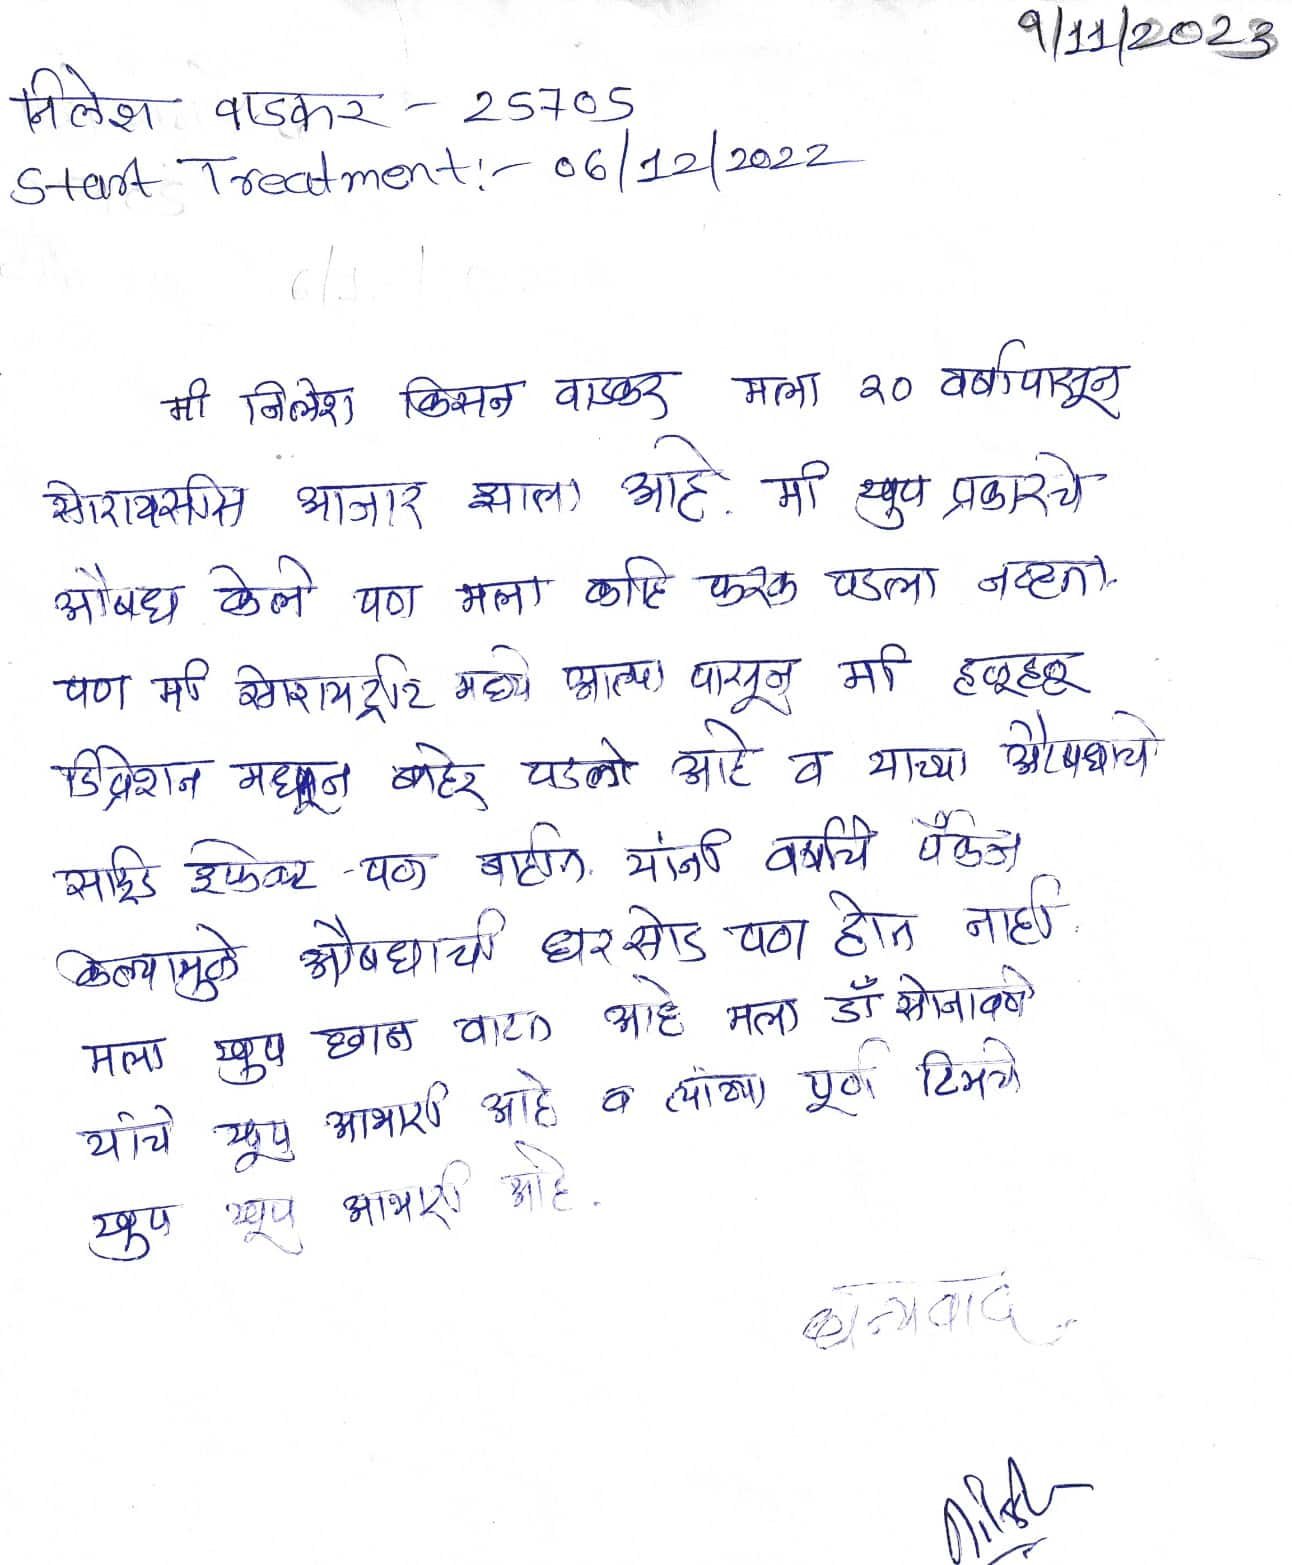 9/11/2023
निलेश वाडकर - 25705
Start Treatment:- 06/12/2022
मी निलेश किसन वाडकर मला २० वर्षापासून
सोरायसीस आजार झाला आहे. मी खुप प्रकारचे
औषध केले पण मला काहि फरक पडला नव्हता.
पण मी सोरायट्रीट मध्ये आल्या पासून मी हळूहळू
डिप्रेशन मधून बाहेर पडलो आहे व याच्या औषधाचे
साईड इफेक्ट पण नाहीत. यांनी वर्षाचे पॅकेज
केल्यामुळे औषधाची धरसोड पण होत नाही.
मला खुप छान वाटत आहे मला डॉ सोनावणे
यांचे खूप आभारी आहे व त्यांच्या पूर्ण टिमचे
खुप खूप आभारी आहे.
धन्यवाद